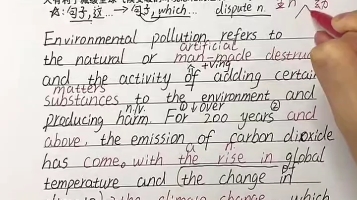 句子,这... → 句子, which... dispute n.
Environmental pollution refers to
artificial
the natural or man-made destruc
+ving
and the activity of adding certain
matters
substances to the environment and
n./v. ① ↓ over ②
producing harm. For 200 years and
above, the emission of carbon dioxide
a n.
has come with the rise in global
temperature and (the change in
climate change, which